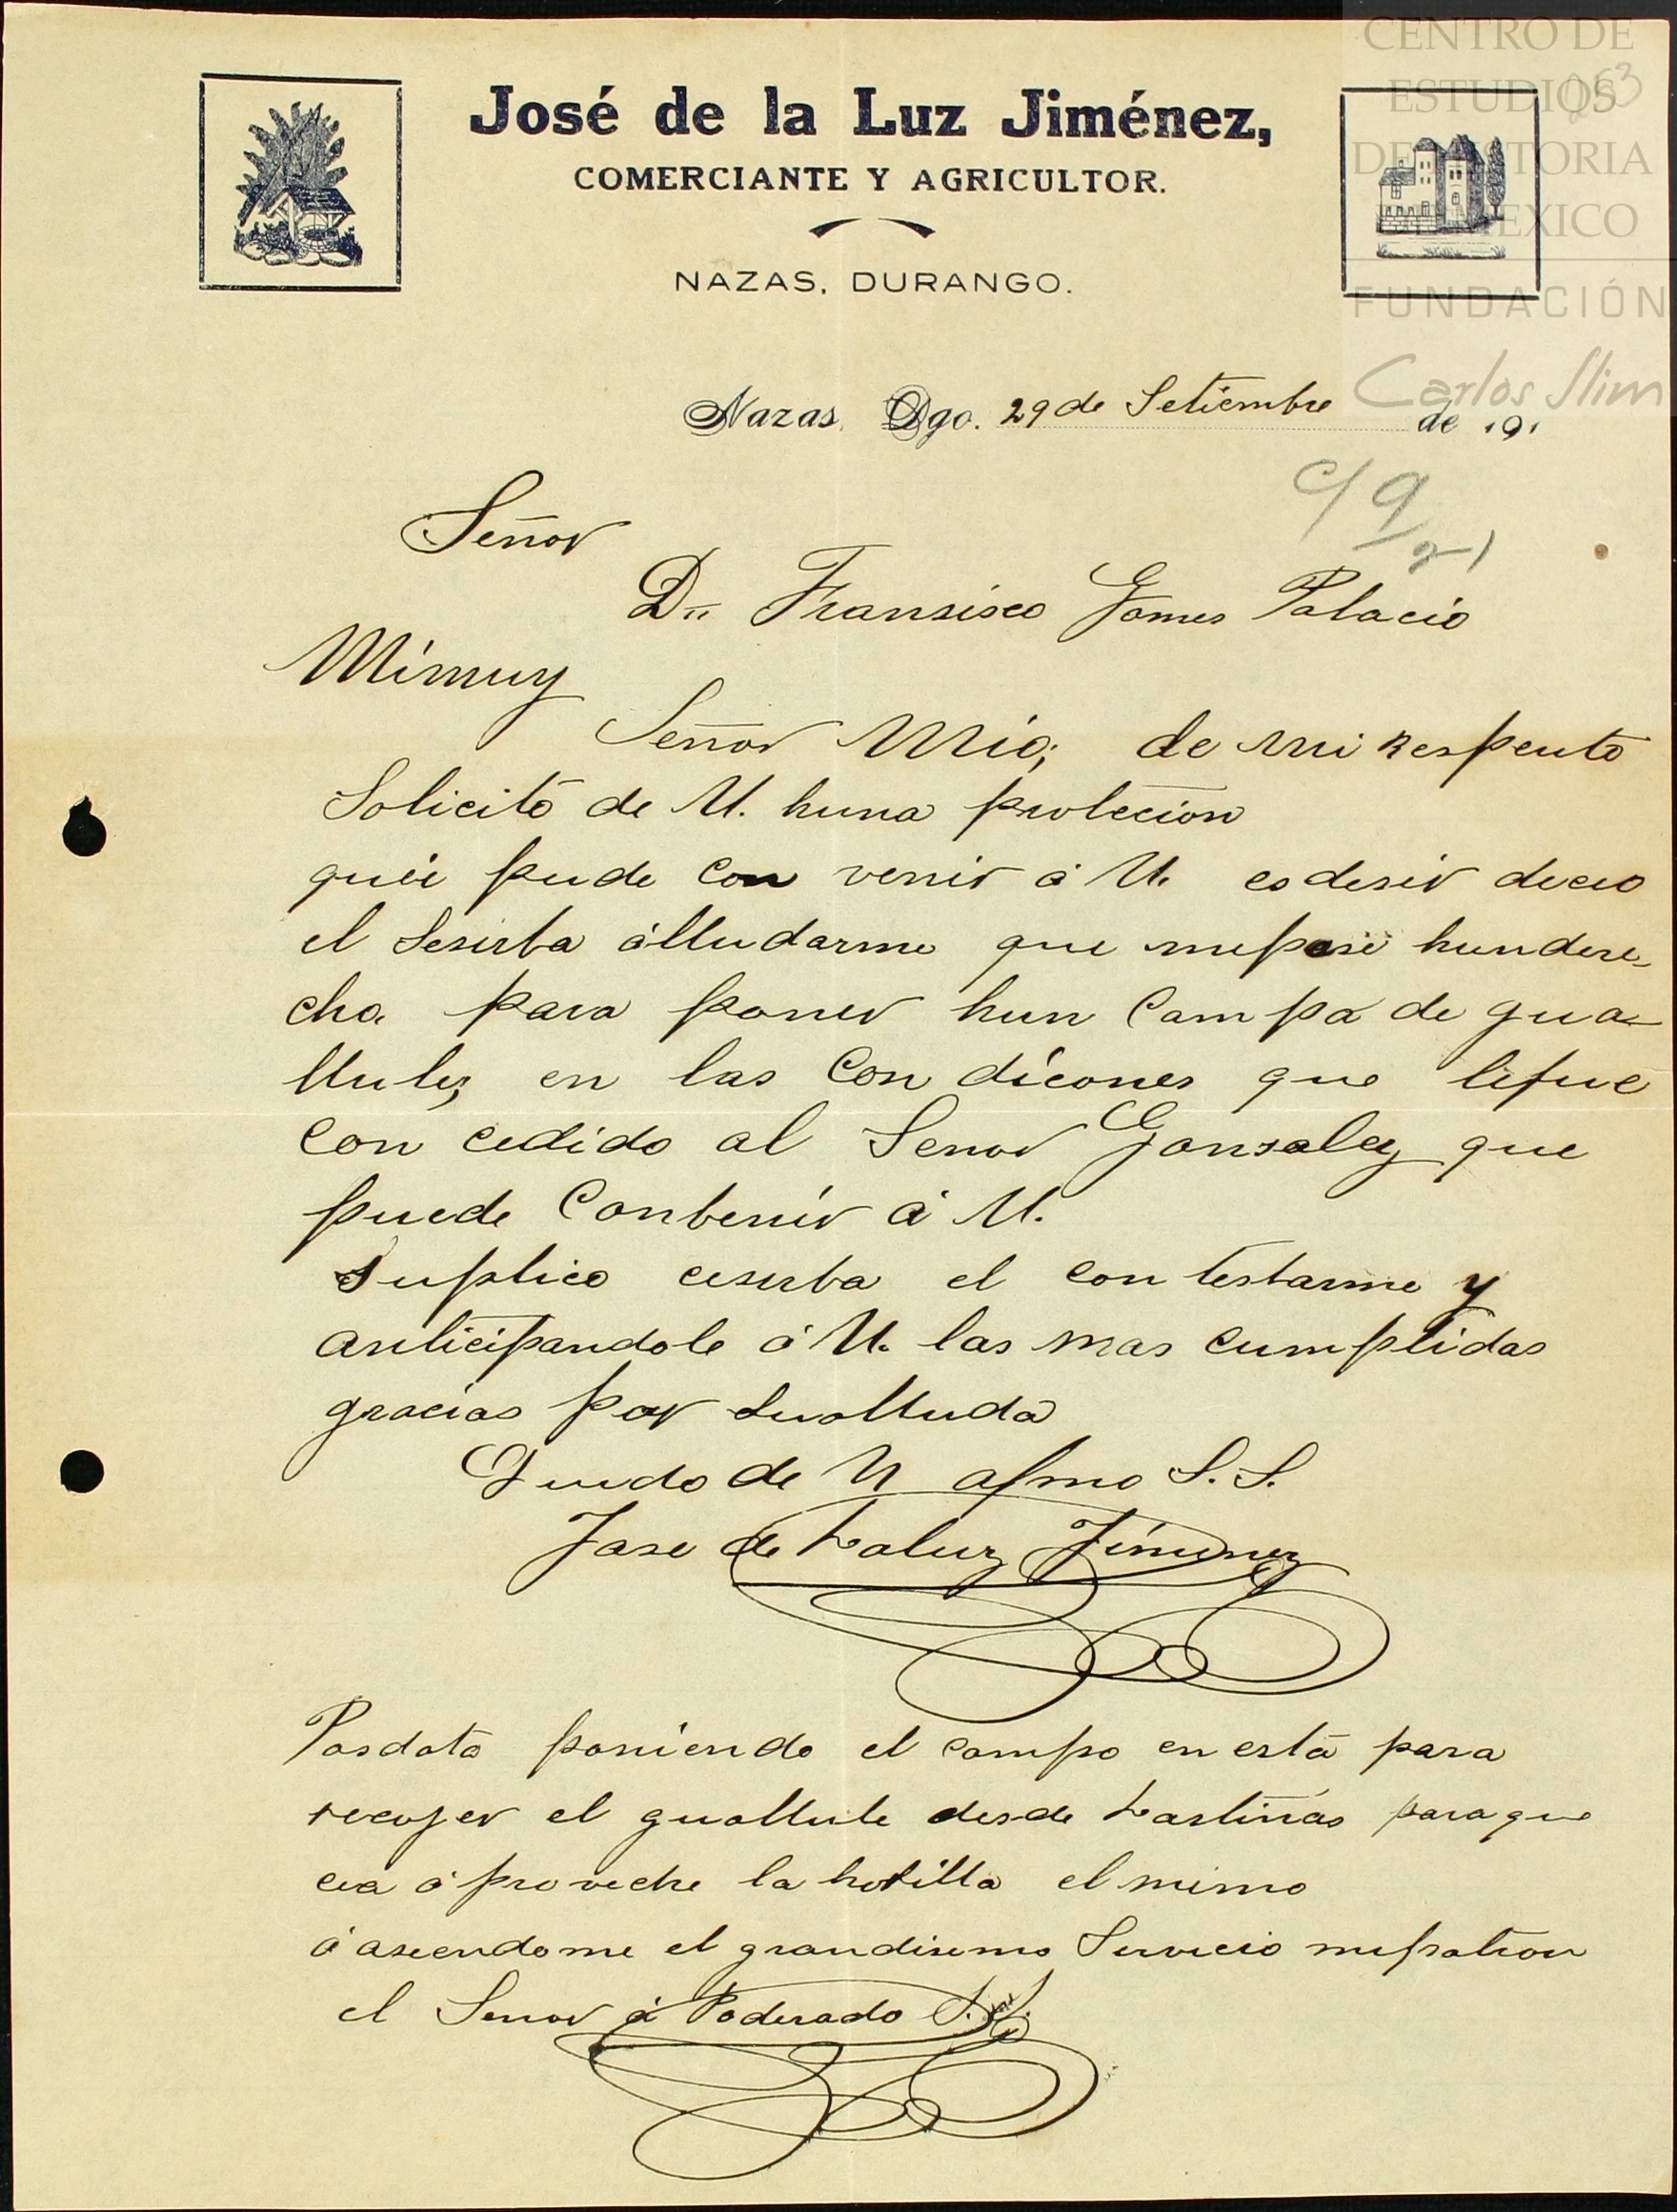 CENTRO DE
ESTUDIOS
DE HISTORIA
DE MEXICO
FUNDACIÓN
Carlos Slim
José de la Luz Jiménez,
COMERCIANTE Y AGRICULTOR.
NAZAS, DURANGO.
Nazas, Dgo. 29 de Setiembre de 191
c/ 9/21
Señor
Dn Fransisco Gomes Palacio
Mimuy
Señor Mio; de mi respeuto
Solicito de U. huna protecion
pude con venir á U. es desir
el Sesirba álludarme que mepase hundere-
cho para poner hun Campa de gua-
llule, en las Con dicones que lefue
Con cedido al Senor Gonsalez que
puede Conbenir á U.
Suplico cesirba el con testarme y
anticipandole á U. las mas cumplidas
gracias por sualluda
Quedo de U afmo S. S.
Jose de Laluz Jimenez
Posdata poniendo el campo en está para
recojer el guallule desde Lastinas para que
cea á proveche la hotilla el mimo
á asiendome el grandisemo Servicio mipatron
el Senor á Poderado S. S.